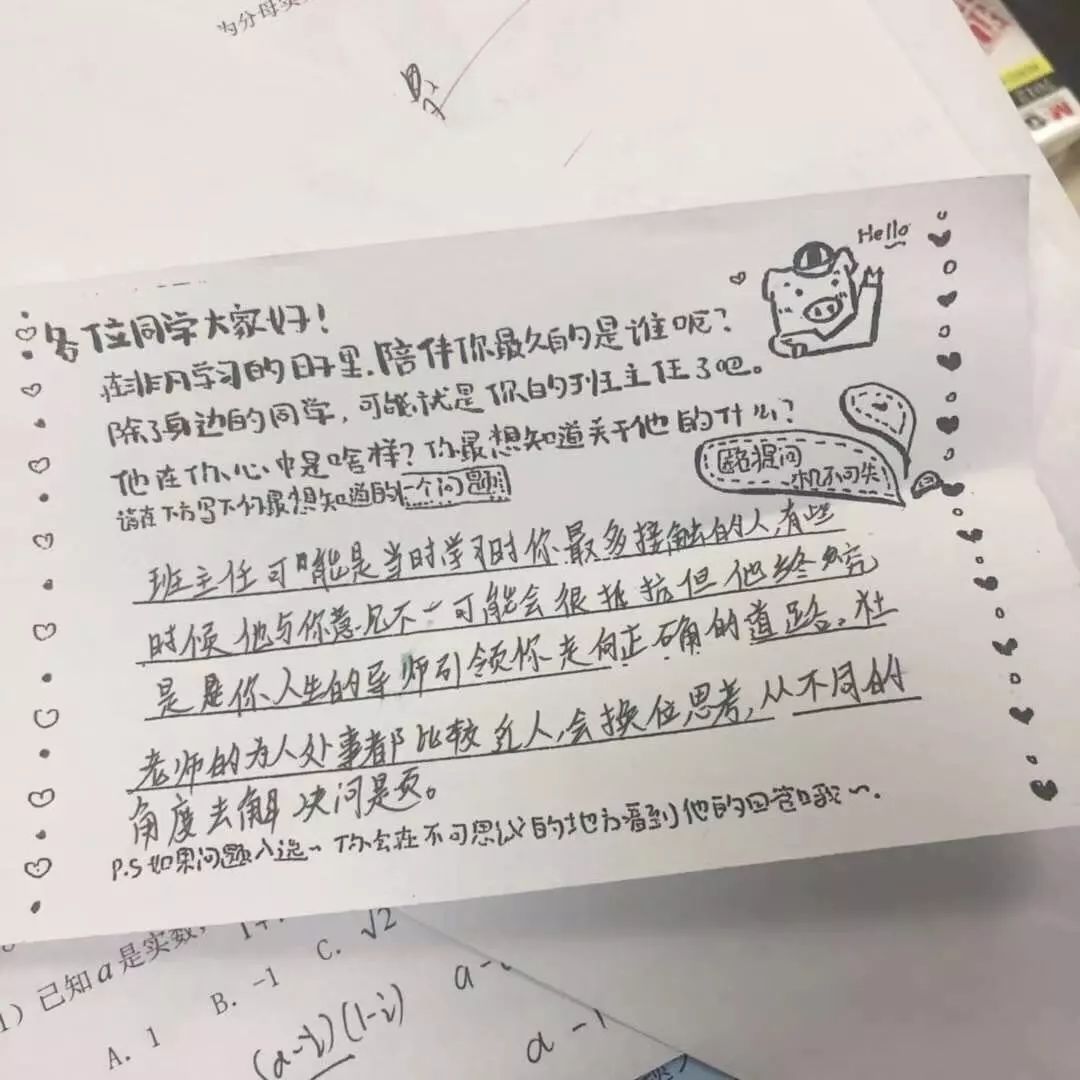 为分母实
Hello
各位同学大家好!
在非凡学习的日子里,陪伴你最久的是谁呢?
除了身边的同学,可能就是你的班主任了吧。
他在你心中是啥样?你最想知道关于他的什么?
请在下方写下你最想知道的一个问题!
提问
机不可失
班主任可能是当时学习时你最多接触的人,有些
时候他与你意见不一可能会很抵抗但他终究
是是你人生的导师引领你走向正确的道路。杜
老师的为人处事都比较近人,会换位思考,从不同的
角度去解决问题。
P.S如果问题入选~你会在不可思议的地方看到他的回答哦~.
1)已知a是实数,
A. 1
B. -1
C. √2
(a-i)(1-i)
a-
a-1